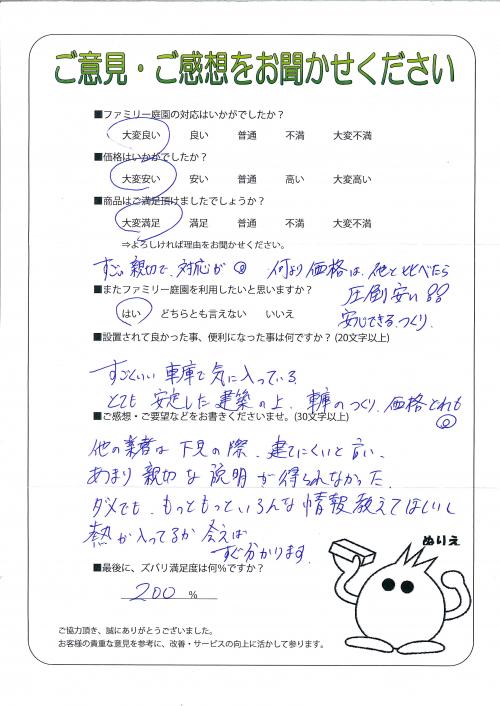 ご意見・ご感想をお聞かせください
■ファミリー庭園の対応はいかがでしたか？
大変良い 良い 普通 不満 大変不満
■価格はいかがでしたか？
大変安い 安い 普通 高い 大変高い
■商品はご満足頂けましたでしょうか？
大変満足 満足 普通 不満 大変不満
⇒よろしければ理由をお聞かせください。
すごい親切で、対応が◎ 何より価格は、他と比べたら
圧倒安い!!
安心できるつくり。
■またファミリー庭園を利用したいと思いますか？
はい どちらとも言えない いいえ
■設置されて良かった事、便利になった事は何ですか？(20文字以上)
すごくいい車庫で気に入っている。
とても安定した建築の上、車庫のつくり、価格どれも
◎
■ご感想・ご要望などをお書きくださいませ。(30文字以上)
他の業者は下見の際、建てにくいと言い、
あまり親切な説明が得られなかった。
ダメでも、もっともっといろんな情報教えてほしいし
熱が入ってるか会えば
すぐ分かります。
■最後に、ズバリ満足度は何％ですか？
200 %
ぬりえ
ご協力頂き、誠にありがとうございました。
お客様の貴重な意見を参考に、改善・サービスの向上に活かして参ります。